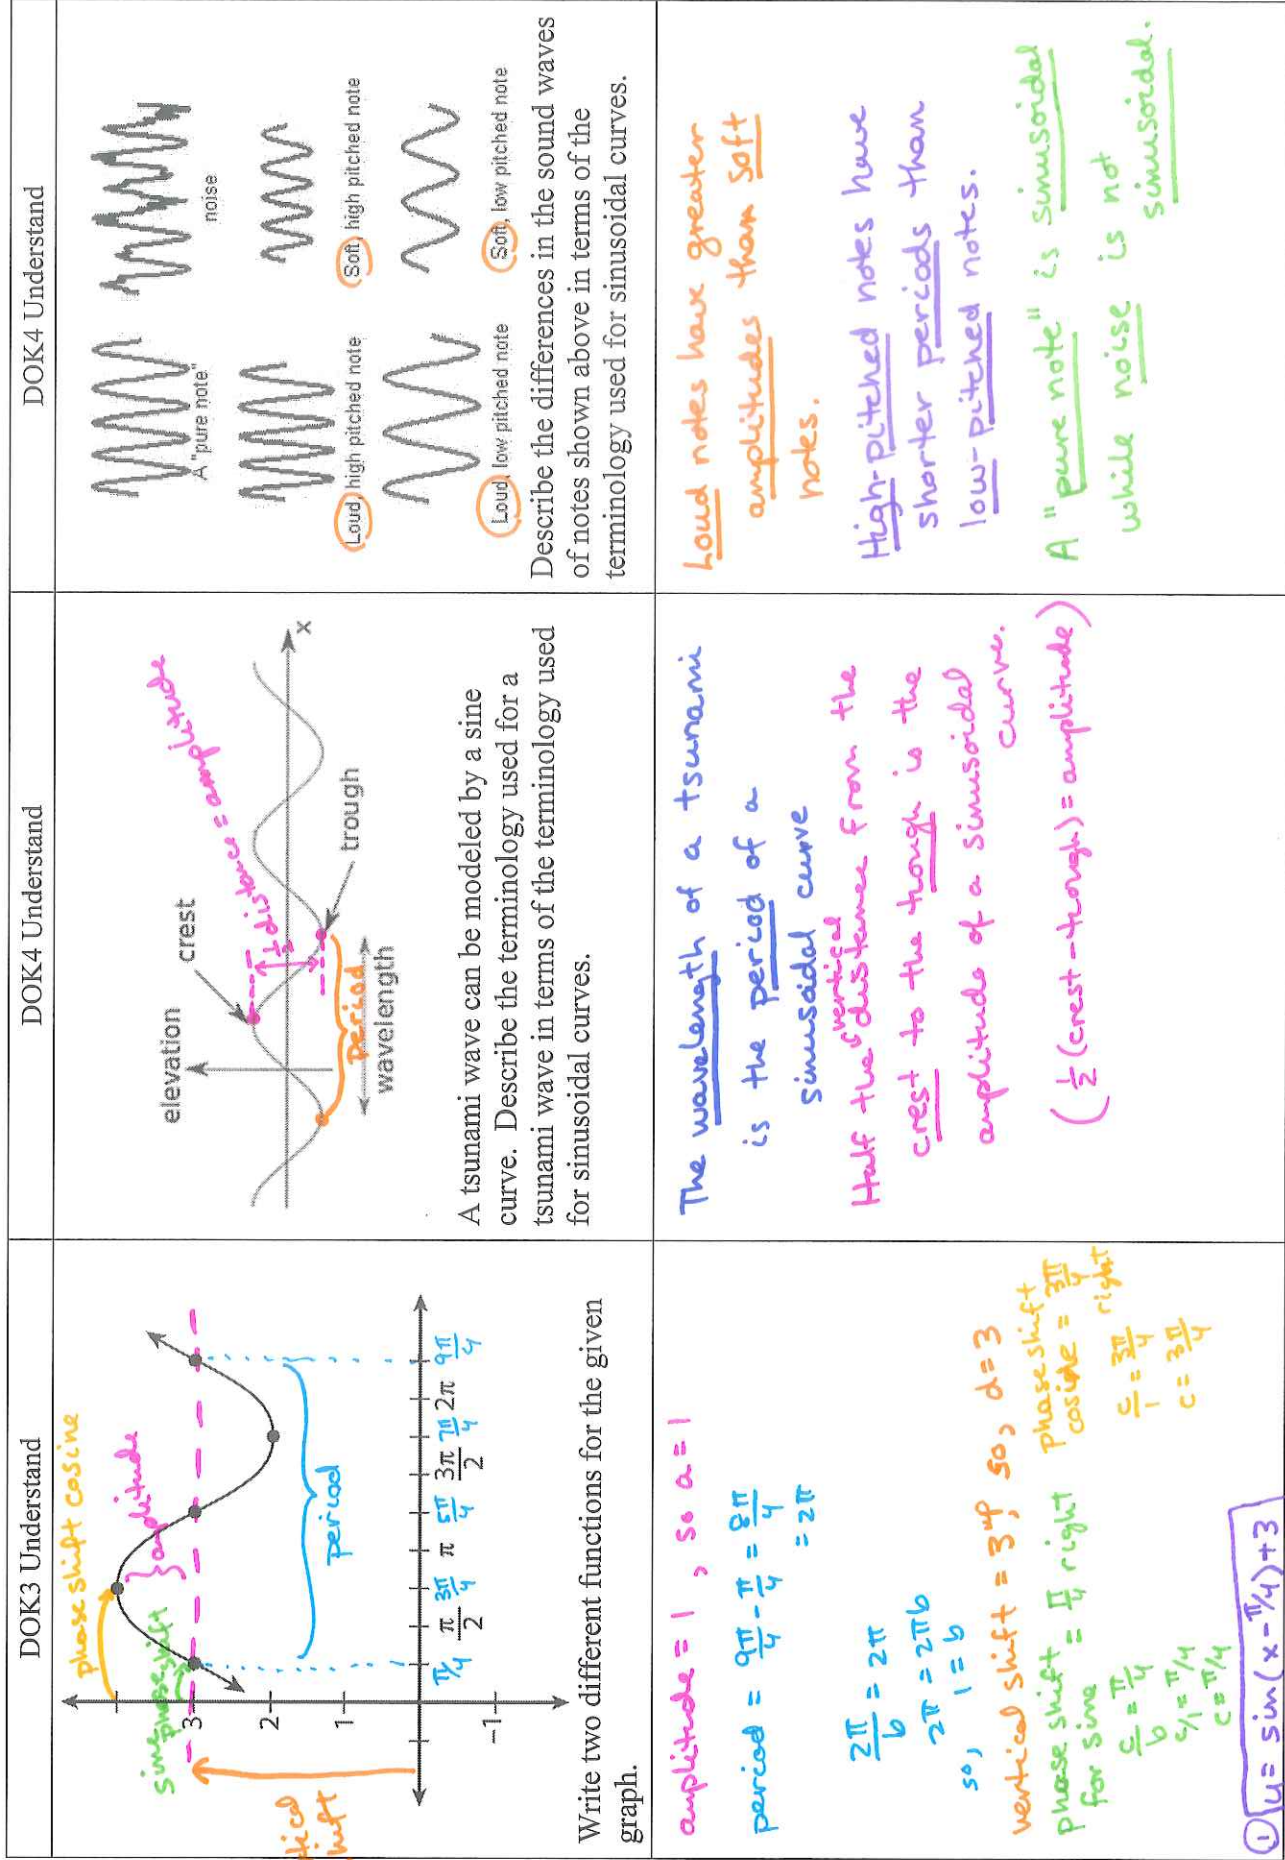 DOK3 Understand
phase shift cosine
sine
phase shift
} amplitude
3
2
1
-1
tical
hift
period
π/4
π/2
3π/4
π
5π/4
3π/2
7π/4
2π
9π/4
Write two different functions for the given
graph.
amplitude = 1, so a = 1
period = 9π/4 - π/4 = 8π/4
= 2π
2π/b = 2π
2π = 2πb
so, 1 = b
vertical shift = 3 up so, d = 3
phase shift = π/4 right
for sine
c/b = π/4
c/1 = π/4
c = π/4
phase shift
cosine = 3π/4
right
c/1 = 3π/4
c = 3π/4
① y = sin(x - π/4) + 3
DOK4 Understand
elevation
crest
1/2 distance = amplitude
x
trough
period
wavelength
A tsunami wave can be modeled by a sine
curve. Describe the terminology used for a
tsunami wave in terms of the terminology used
for sinusoidal curves.
The wavelength of a tsunami
is the period of a
sinusoidal curve
Half the vertical distance from the
crest to the trough is the
amplitude of a sinusoidal
curve.
(1/2 (crest - trough) = amplitude)
DOK4 Understand
A "pure note"
noise
Loud, high pitched note
Soft, high pitched note
Loud, low pitched note
Soft, low pitched note
Describe the differences in the sound waves
of notes shown above in terms of the
terminology used for sinusoidal curves.
Loud notes have greater
amplitudes than soft
notes.
High-pitched notes have
shorter periods than
low-pitched notes.
A "pure note" is sinusoidal
while noise is not
sinusoidal.